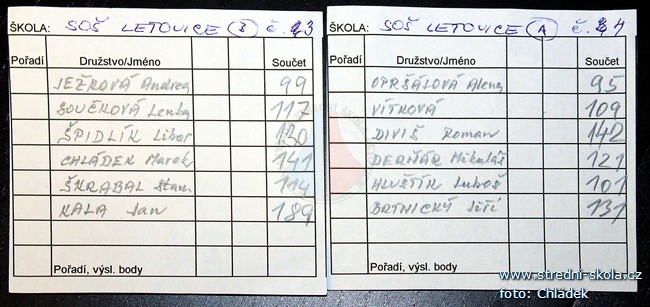 ŠKOLA: SOŠ LETOVICE (B) č. 3
Pořadí Družstvo/Jméno Součet
JEŽKOVÁ Andrea 99
SOUČKOVÁ Lenka 117
ŠPIDLÍK Libor 130
CHLÁDEK Marek 141
ŠKRABAL Stan. 114
KALA Jan 189
Pořadí, výsl. body
ŠKOLA: SOŠ LETOVICE (A) č. 4
Pořadí Družstvo/Jméno Součet
OPRŠÁLOVÁ Alena 95
VÍTKOVÁ 109
DIVIŠ Roman 142
DERŇÁR Mikuláš 121
HLUŠTÍK Luboš 101
BRTNICKÝ Jiří 131
Pořadí, výsl. body
www.stredni-skola.cz
foto: Chládek